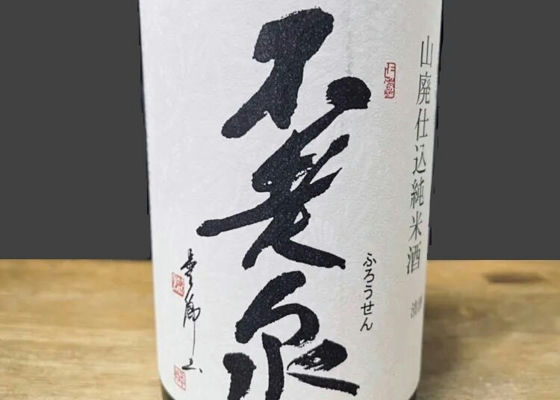 山廃仕込純米酒
不老泉
ふろうせん